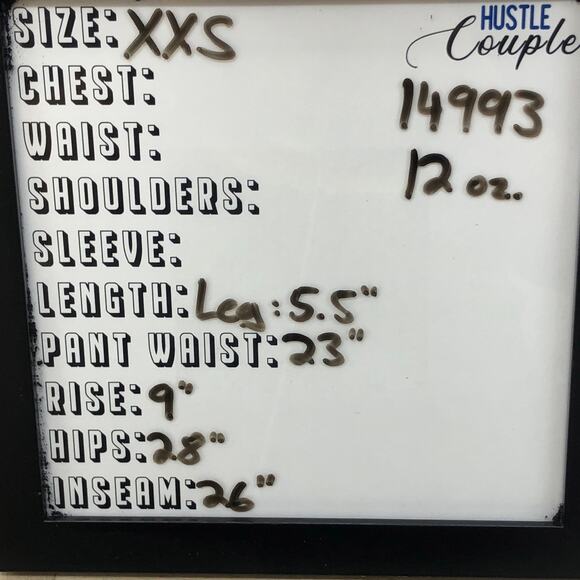 SIZE: XXS
HUSTLE
Couple
CHEST:
14993
WAIST:
12 oz.
SHOULDERS:
SLEEVE:
LENGTH: Leg: 5.5"
PANT WAIST: 23"
RISE: 9"
HIPS: 28"
INSEAM: 26"